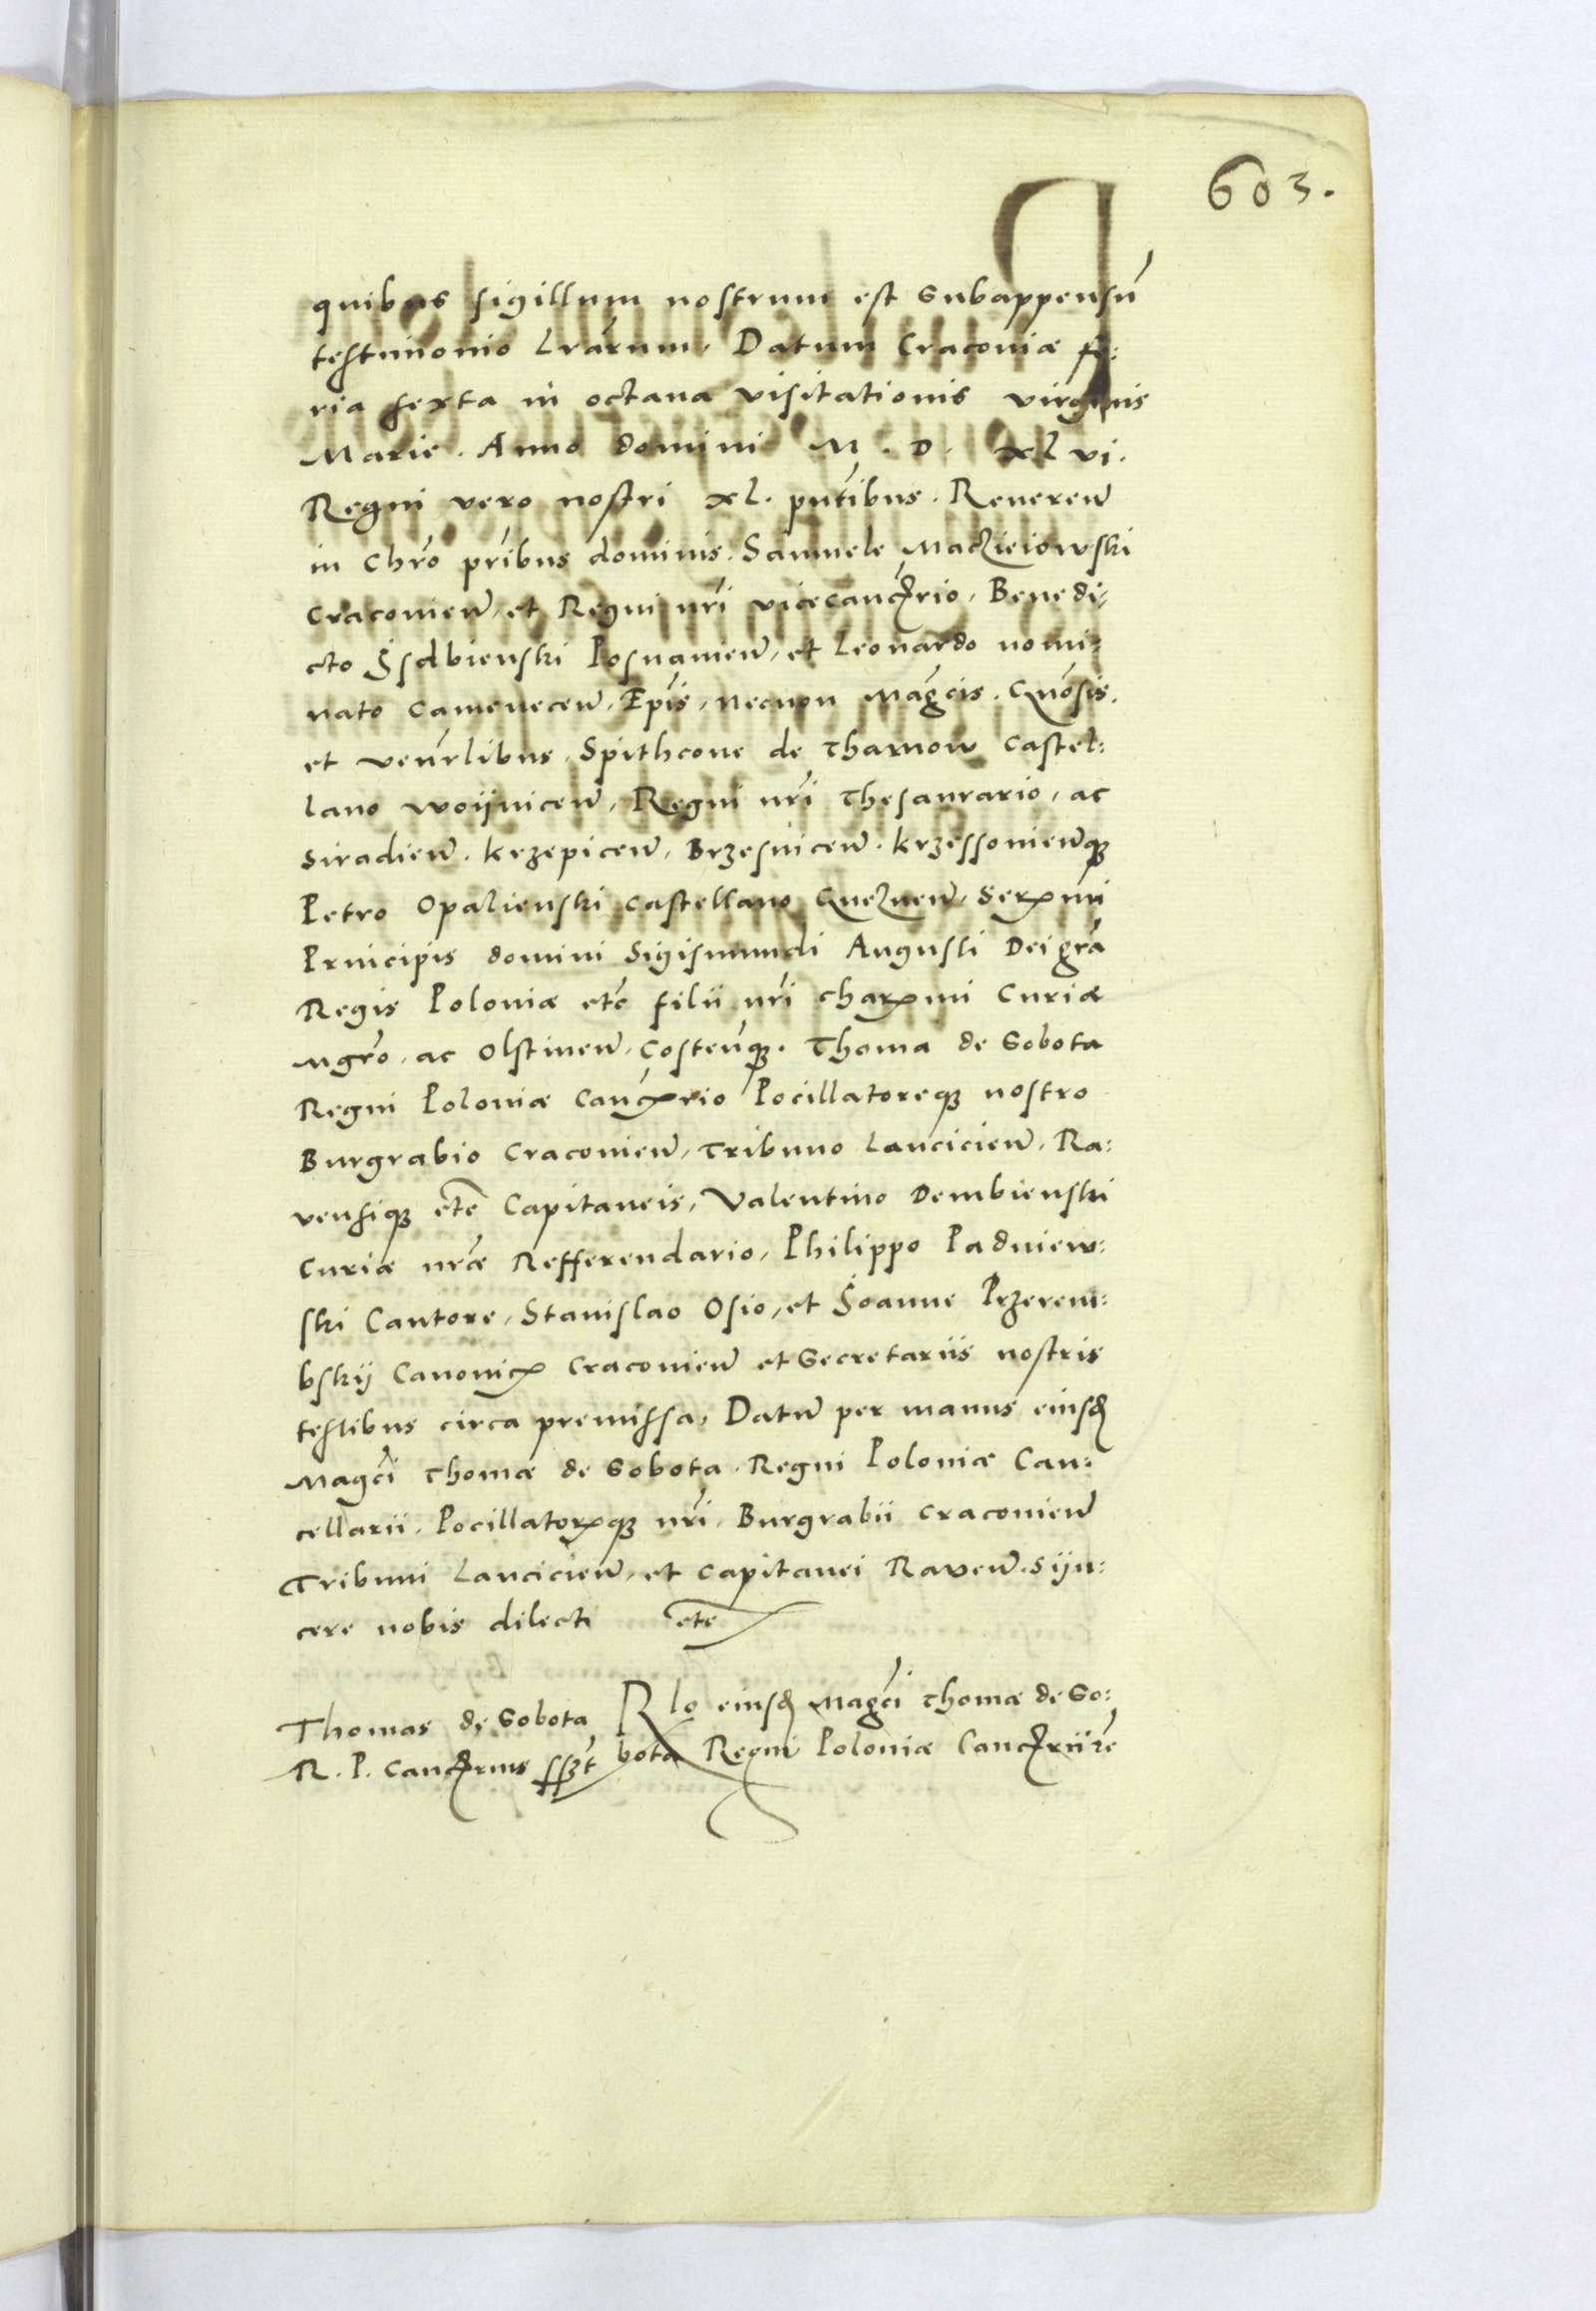 603.
quibus sigillum nostrum est subappensu͂
testimonio Lrarum. Datum Cracoviæ fe:
ria sexta in octava visitationis virginis
Marie. Anno domini M. D. xl vi.
Regni vero nostri xl. pn̄tibus. Reveren̄
in Chr̄o pr̄ibus dominis. Samuele Maczieiowski
Cracovien̄. et Regni nr̄i vicecanc͞rio. Benedi:
cto Isdbienski Posnanien̄, et Leonardo nomi:
nato Camenecen̄. Ep̄is, necnon Mag̃cis. Gn̄osis.
et ven̄rlibus. Spithcone de Tharnow Castel:
lano woijnicen̄, Regni nr̄i Thesaurario, ac
Siradien̄. Krzepicen̄, Brzesnicen̄. Krzessonien̄q̨
Petro Opalienski castellano Gneznen̄. Serx̃mi
Principis domini Sigismundi Augusti Dei gr̄a
Regis Poloniæ etc̃ filii nr̄i charx̃mi Curiæ
Mgr̄o. ac Olstinen̄. Costen̄q̨. Thoma de Sobota
Regni Poloniæ Canc͞rio Pocillatoreq̨ nostro
Burgrabio Cracovien̄, Tribuno Lancicien̄. Ra:
vensiq̨ etc̃ Capitaneis, Valentino Dembienski
Curiæ nr̄æ Refferendario, Philippo Padniew:
ski Cantore, Stanislao Osio, et Joanne Przerem:
bskij Canonicis Cracovien̄ et Secretariis nostris
testibus circa premissa. Datum per manus eiusd̄
Magc̄i Thomæ de Sobota. Regni Poloniæ Can:
cellarii. Pocillatorisq̨ nr̄i. Burgrabii Cracovien̄
Tribuni Lancicien̄. et Capitanei Raven̄. sijn:
cere nobis dilecti etc
Thomas de Sobota
R. P. Canc͞rius sszt
Rlo eiusd̄ Magc̄i Thomæ de So:
bota Regni Poloniæ Canc͞rii rē